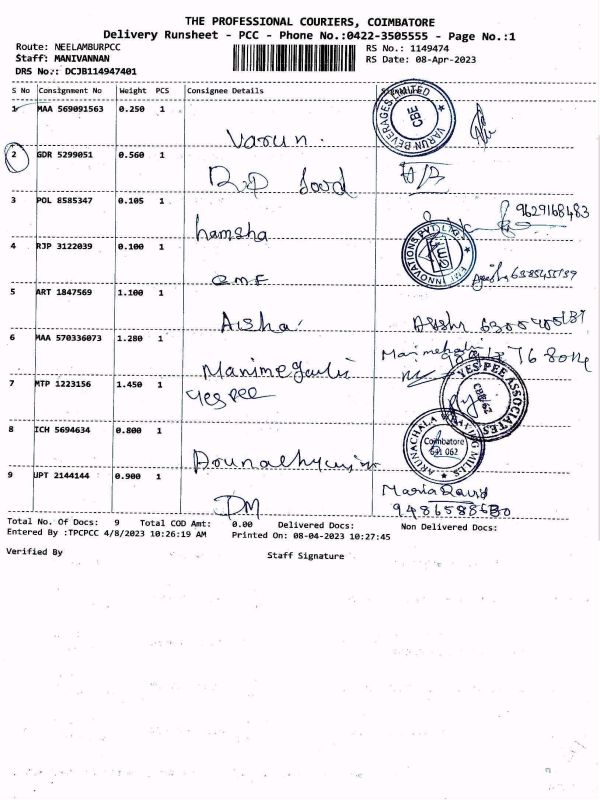 THE PROFESSIONAL COURIERS, COIMBATORE
Delivery Runsheet - PCC - Phone No.:0422-3505555 - Page No.:1
Route: NEELAMBURPCC RS No.: 1149474
Staff: MANIVANNAN RS Date: 08-Apr-2023
DRS No.: DCJB114947401
S No Consignment No Weight PCS Consignee Details
1 MAA 569091563 0.250 1
VARUN BEVERAGES LIMITED CBE
Varun.
2 GDR 5299051 0.560 1
3 POL 8585347 0.105 1
9629168483
hamsha
4 RJP 3122039 0.100 1
INNOVATIONS PVT LTD
5 ART 1847569 1.100 1
Aisha
6 MAA 570336073 1.280 1
7 MTP 1223156 1.450 1
yes pee
YES PEE ASSOCIATES
8 ICH 5694634 0.800 1
ARUNACHALA MILLS
Coimbatore
641 062
9 UPT 2144144 0.900 1
DM
Maria David
Total No. Of Docs: 9 Total COD Amt: 0.00 Delivered Docs: Non Delivered Docs:
Entered By :TPCPCC 4/8/2023 10:26:19 AM Printed On: 08-04-2023 10:27:45
Verified By Staff Signature